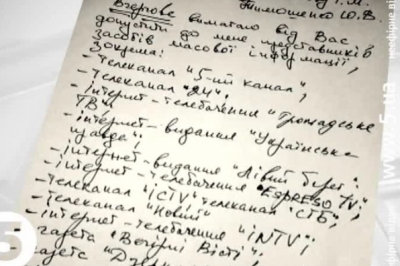 Тимошенко Ю.В.
Вчергове вимагаю від Вас
допустити до мене представників
засобів масової інформації,
зокрема:
- телеканал "5-ий канал",
- телеканал "24",
- інтернет-телебачення "Громадське
ТВ",
- інтернет-видання "Українська
правда";
- інтернет-видання "Лівий берег";
- інтернет-телебачення "Espreso TV";
- телеканал "ICTV", телеканал "СТБ",
- телеканал "Новий"
- інтернет-телебачення "INTV";
газета "Вечірні Вісті";
газета
5
www.5.ua
неефірне.ві